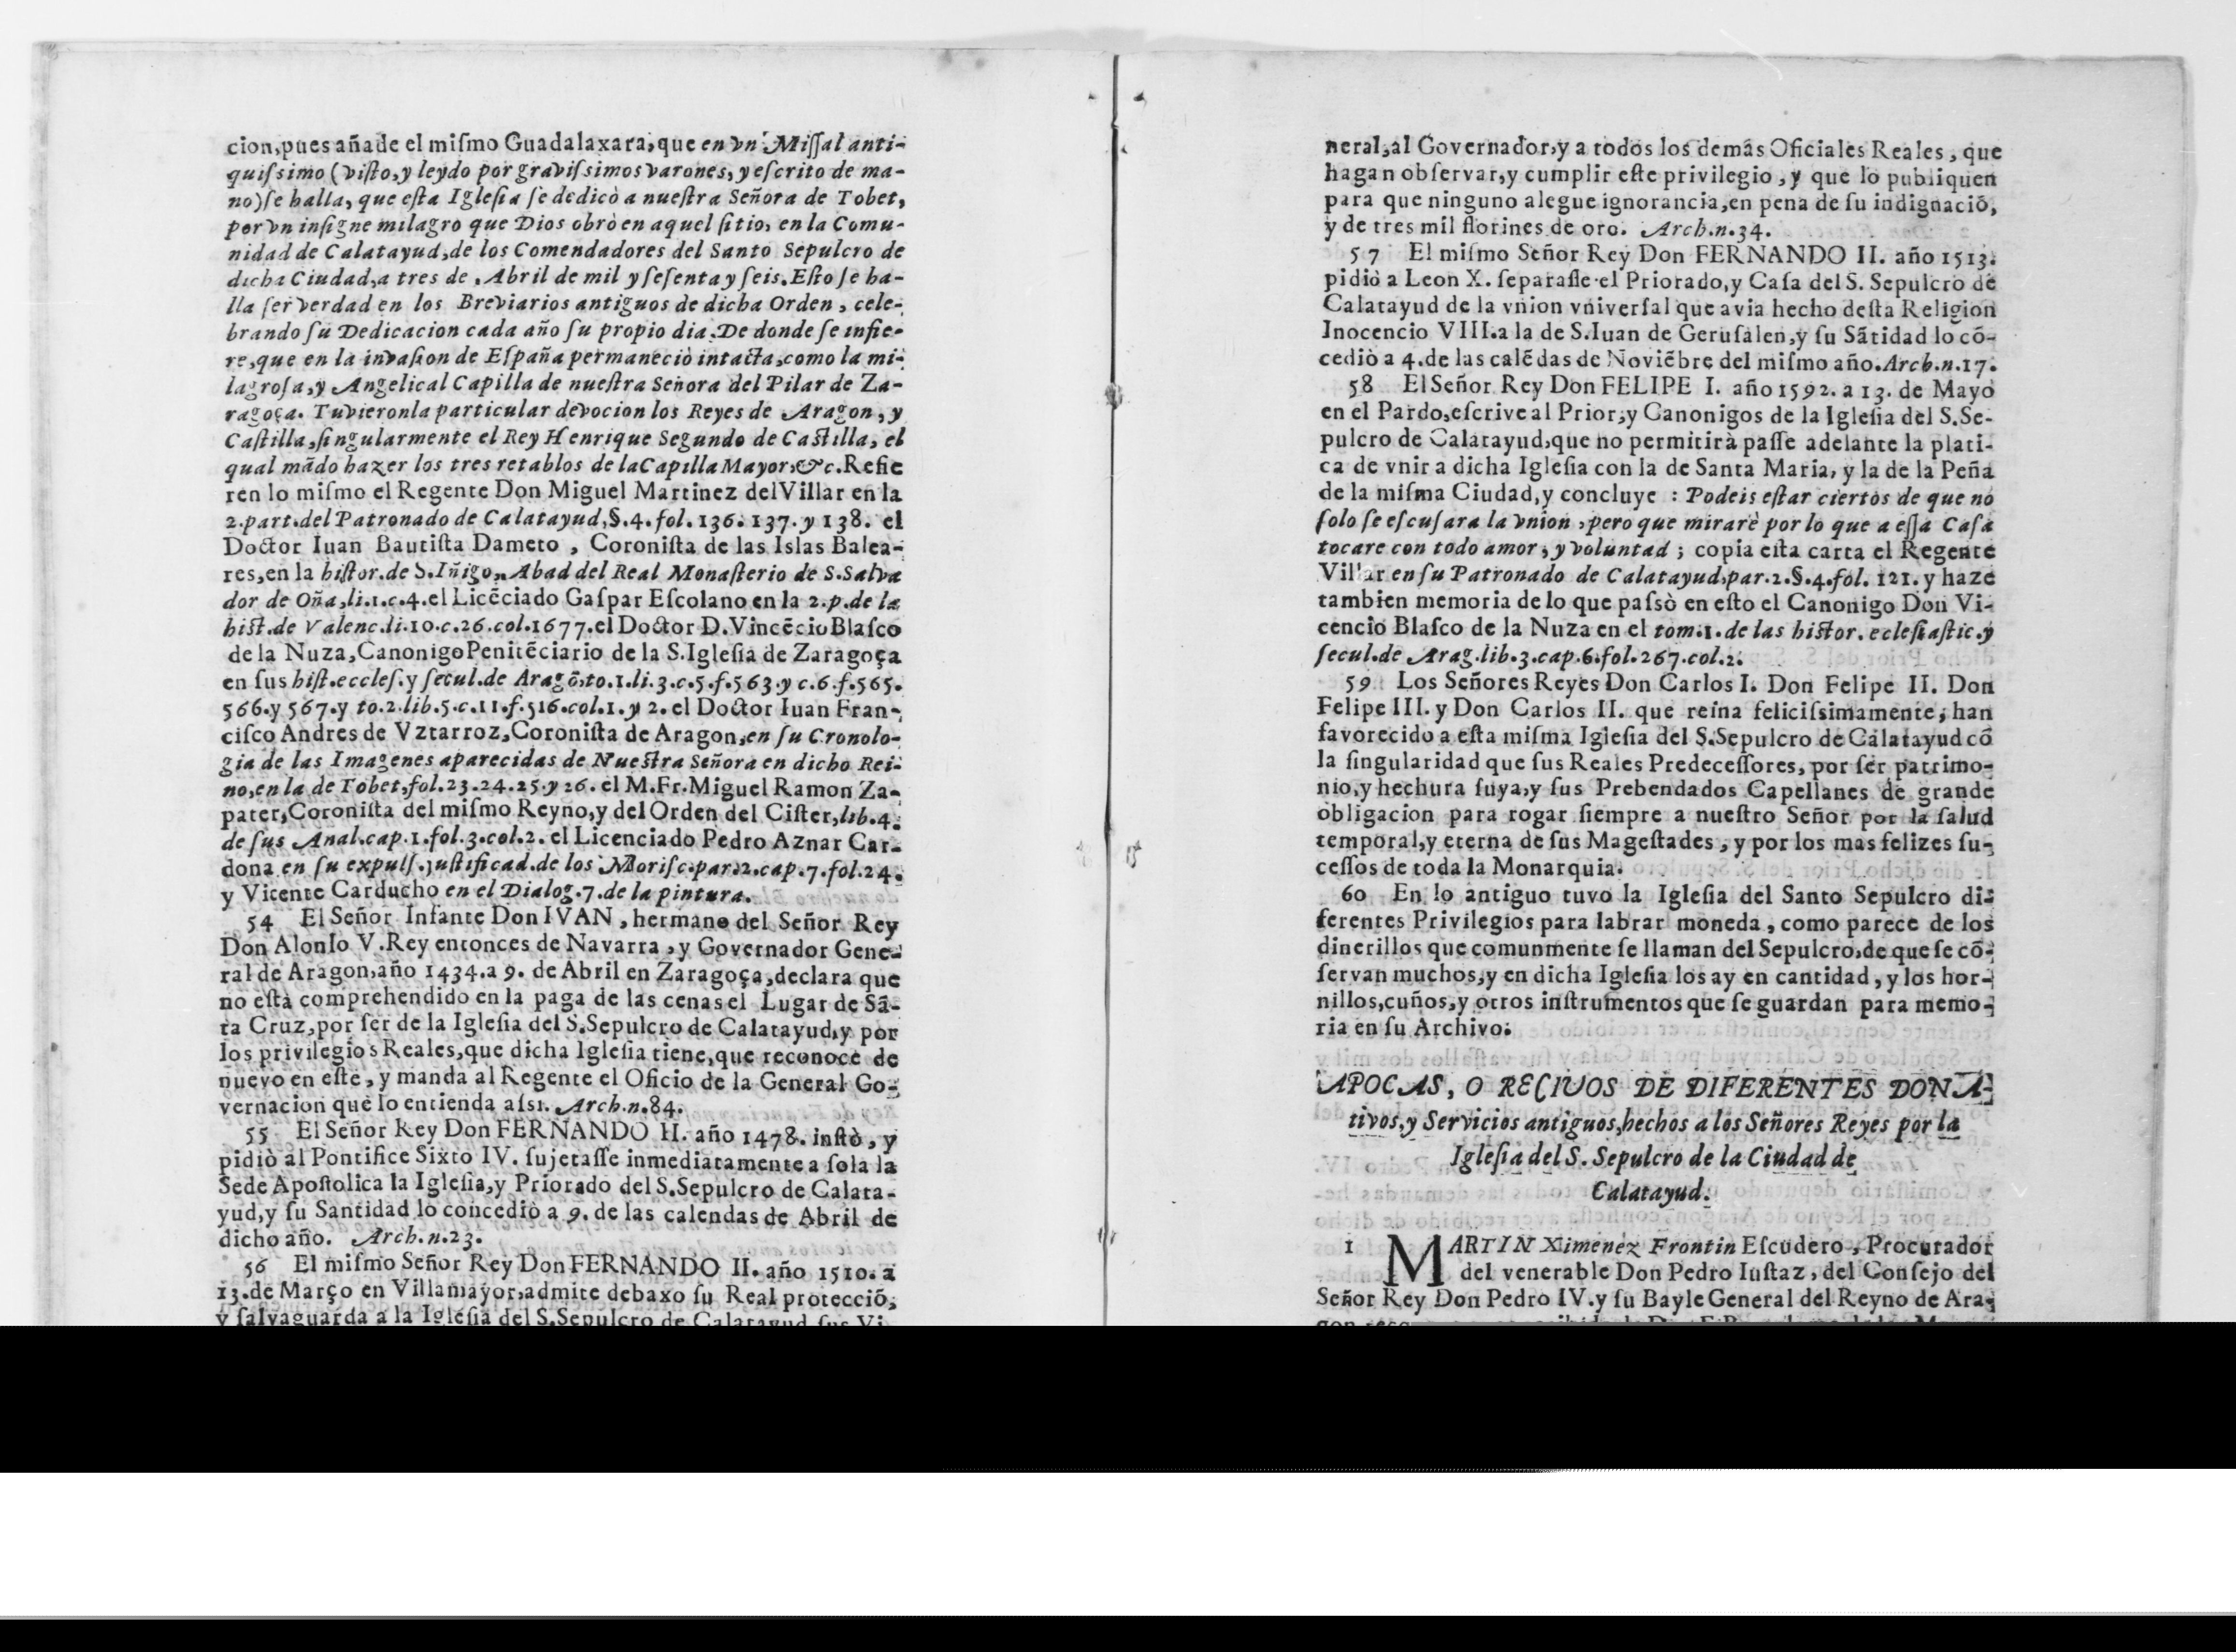 cion,pues añade el miſmo Guadalaxara,que en vn Miſſal anti-
quiſsimo (viſto,y leydo por graviſsimos varones, y eſcrito de ma-
no)ſe halla, que eſta Igleſia ſe dedicò a nueſtra Señora de Tobet,
por vn inſigne milagro que Dios obrò en aquel ſitio, en la Comu-
nidad de Calatayud,de los Comendadores del Santo Sepulcro de
dicha Ciudad,a tres de Abril de mil y ſeſenta y ſeis.Eſto ſe ha-
lla ſer verdad en los Breviarios antiguos de dicha Orden, cele-
brando ſu Dedicacion cada año ſu propio dia.De donde ſe infie-
re,que en la invaſion de Eſpaña permaneciò intacta,como la mi-
lagroſa,y Angelical Capilla de nueſtra Señora del Pilar de Za-
ragoça. Tuvieronla particular devocion los Reyes de Aragon, y
Caſtilla,ſingularmente el Rey Henrique Segundo de Caſtilla, el
qual mãdo hazer los tres retablos de la Capilla Mayor,&c.Refie
ren lo miſmo el Regente Don Miguel Martinez del Villar en la
2.part.del Patronado de Calatayud,§.4.fol.136.137.y 138. el
Doctor Iuan Bautiſta Dameto , Coroniſta de las Islas Balea-
res,en la hiſtor.de S.Iñigo, Abad del Real Monaſterio de S.Salva
dor de Oña,li.1.c.4.el Licẽciado Gaſpar Eſcolano en la 2.p.de la
hiſt.de Valenc.li.10.c.26.col.1677.el Doctor D.Vincẽcio Blaſco
de la Nuza,Canonigo Penitẽciario de la S.Igleſia de Zaragoça
en ſus hiſt.eccleſ.y ſecul.de Aragõ,to.1.li.3.c.5.f.563.y c.6.f.565.
566.y 567.y to.2.lib.5.c.11.f.516.col.1.y 2. el Doctor Iuan Fran-
ciſco Andres de Vztarroz,Coroniſta de Aragon,en ſu Cronolo-
gia de las Imagenes aparecidas de Nueſtra Señora en dicho Rei-
no,en la de Tobet,fol.23.24.25.y 26. el M.Fr.Miguel Ramon Za-
pater,Coroniſta del miſmo Reyno,y del Orden del Ciſter,lib.4.
de ſus Anal.cap.1.fol.3.col.2. el Licenciado Pedro Aznar Car-
dona en ſu expulſ.juſtificad.de los Moriſc.par.2.cap.7.fol.24.
y Vicente Carducho en el Dialog.7.de la pintura.
54 El Señor Infante Don IVAN , hermano del Señor Rey
Don Alonſo V.Rey entonces de Navarra , y Governador Gene-
ral de Aragon,año 1434.a 9. de Abril en Zaragoça,declara que
no eſtà comprehendido en la paga de las cenas el Lugar de Sã-
ta Cruz,por ſer de la Igleſia del S.Sepulcro de Calatayud,y por
los privilegios Reales,que dicha Igleſia tiene,que reconoce de
nuevo en eſte, y manda al Regente el Oficio de la General Go-
vernacion que lo entienda aſsi. Arch.n.84.
55 El Señor Rey Don FERNANDO II. año 1478. inſtò, y
pidiò al Pontifice Sixto IV. ſujetaſſe inmediatamente a ſola la
Sede Apoſtolica la Igleſia,y Priorado del S.Sepulcro de Calata-
yud,y ſu Santidad lo concediò a 9. de las calendas de Abril de
dicho año. Arch.n.23.
56 El miſmo Señor Rey Don FERNANDO II. año 1510. a
13.de Março en Villamayor,admite debaxo ſu Real protecciõ,
y ſalvaguarda a la Igleſia del S.Sepulcro de Calatayud ſus Vi-
neral,al Governador,y a todos los demàs Oficiales Reales, que
hagan obſervar,y cumplir eſte privilegio , y que lo publiquen
para que ninguno alegue ignorancia,en pena de ſu indignaciõ,
y de tres mil florines de oro. Arch.n.34.
57 El miſmo Señor Rey Don FERNANDO II. año 1513.
pidiò a Leon X. ſeparaſſe el Priorado,y Caſa del S. Sepulcro de
Calatayud de la vnion vniverſal que avia hecho deſta Religion
Inocencio VIII.a la de S.Iuan de Geruſalen,y ſu Sãtidad lo cõ-
cediò a 4.de las calẽdas de Noviẽbre del miſmo año.Arch.n.17.
58 El Señor Rey Don FELIPE I. año 1592. a 13. de Mayo
en el Pardo,eſcrive al Prior,y Canonigos de la Igleſia del S.Se-
pulcro de Calatayud,que no permitirà paſſe adelante la plati-
ca de vnir a dicha Igleſia con la de Santa Maria, y la de la Peña
de la miſma Ciudad,y concluye : Podeis eſtar ciertos de que no
ſolo ſe eſcuſara la vnion , pero que mirarè por lo que a eſſa Caſa
tocare con todo amor, y voluntad ; copia eſta carta el Regente
Villar en ſu Patronado de Calatayud,par.2.§.4.fol. 121. y haze
tambien memoria de lo que paſsò en eſto el Canonigo Don Vi-
cencio Blaſco de la Nuza en el tom.1. de las hiſtor. ecleſiaſtic.y
ſecul.de Arag.lib.3.cap.6.fol.267.col.2.
59 Los Señores Reyes Don Carlos I. Don Felipe II. Don
Felipe III. y Don Carlos II. que reina feliciſsimamente, han
favorecido a eſta miſma Igleſia del S.Sepulcro de Calatayud cõ
la ſingularidad que ſus Reales Predeceſſores, por ſer patrimo-
nio,y hechura ſuya,y ſus Prebendados Capellanes de grande
obligacion para rogar ſiempre a nueſtro Señor por la ſalud
temporal,y eterna de ſus Mageſtades , y por los mas felizes ſu-
ceſſos de toda la Monarquia.
60 En lo antiguo tuvo la Igleſia del Santo Sepulcro di-
ferentes Privilegios para labrar moneda , como parece de los
dinerillos que comunmente ſe llaman del Sepulcro,de que ſe cõ-
ſervan muchos,y en dicha Igleſia los ay en cantidad , y los hor-
nillos,cuños,y otros inſtrumentos que ſe guardan para memo-
ria en ſu Archivo.
APOCAS, O RECIVOS DE DIFERENTES DONA-
tivos,y Servicios antiguos,hechos a los Señores Reyes por la
Igleſia del S. Sepulcro de la Ciudad de
Calatayud.
1 MARTIN Ximenez Frontin Eſcudero , Procurador
del venerable Don Pedro Iuſtaz , del Conſejo del
Señor Rey Don Pedro IV.y ſu Bayle General del Reyno de Ara-